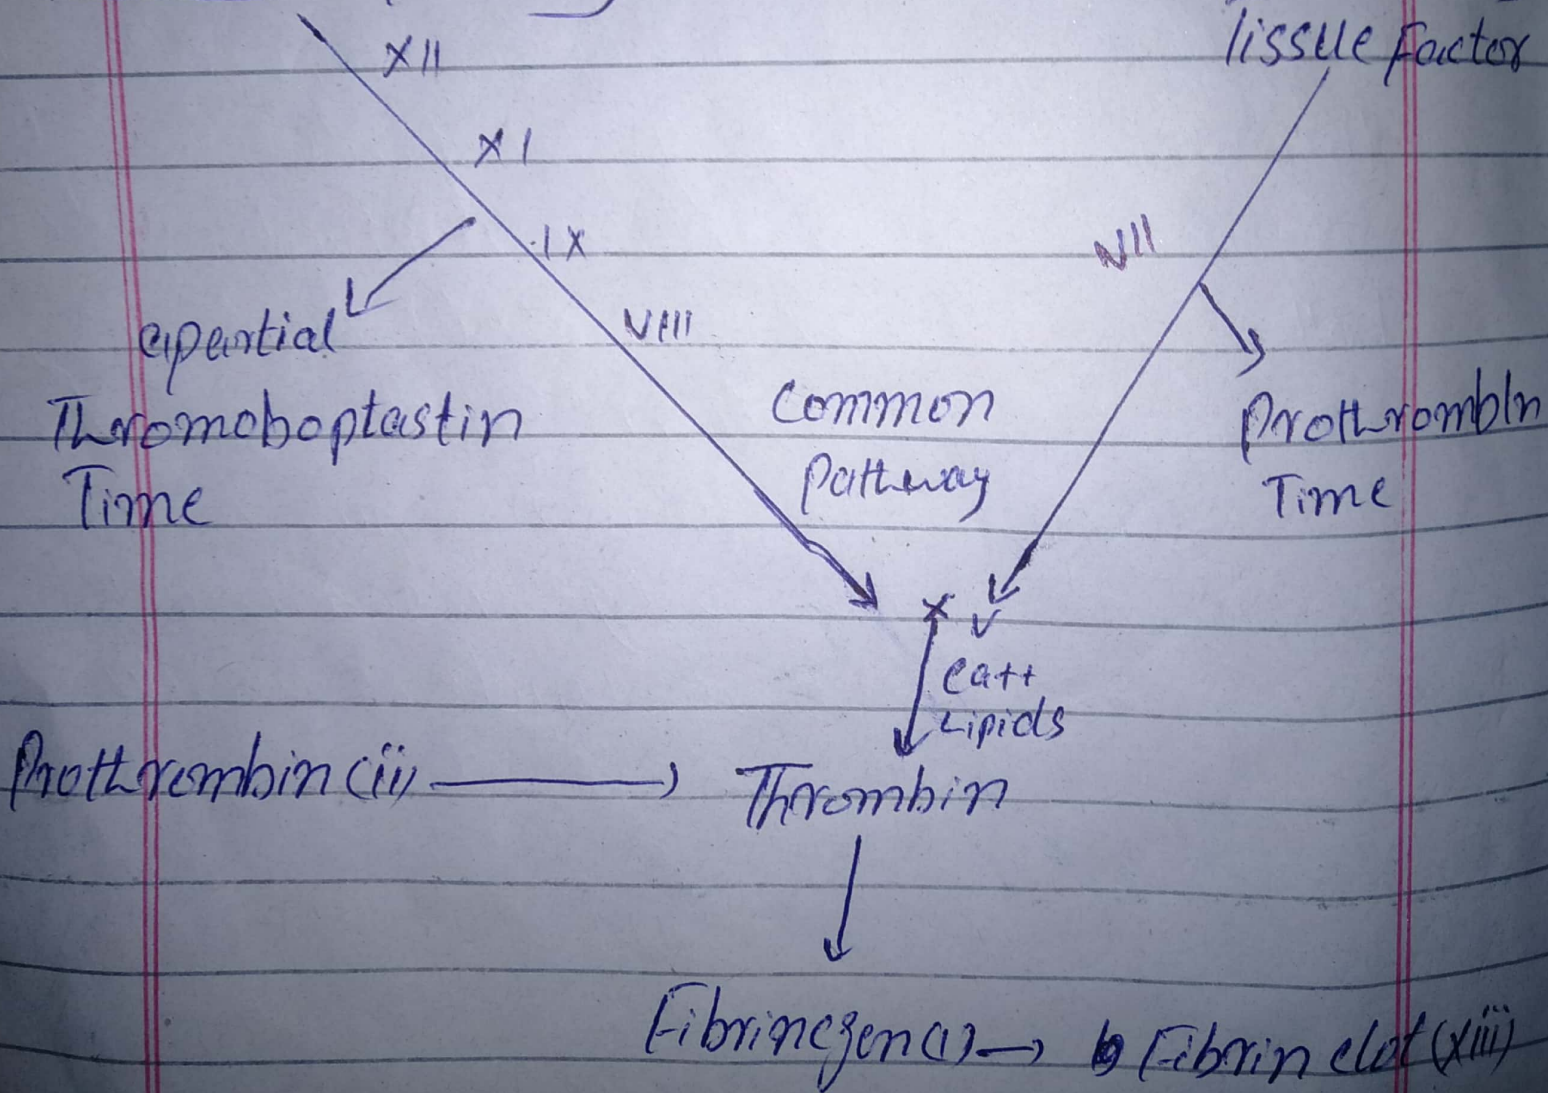 Tissue Factor
XII
XI
IX
VII
VIII
apartial
Thromoboplastin
Time
Common
Pathway
Prothrombin
Time
X V
Ca++
Lipids
Prothrombin (ii) → Thrombin
Fibrinogen (1) → Fibrin clot (xiii)